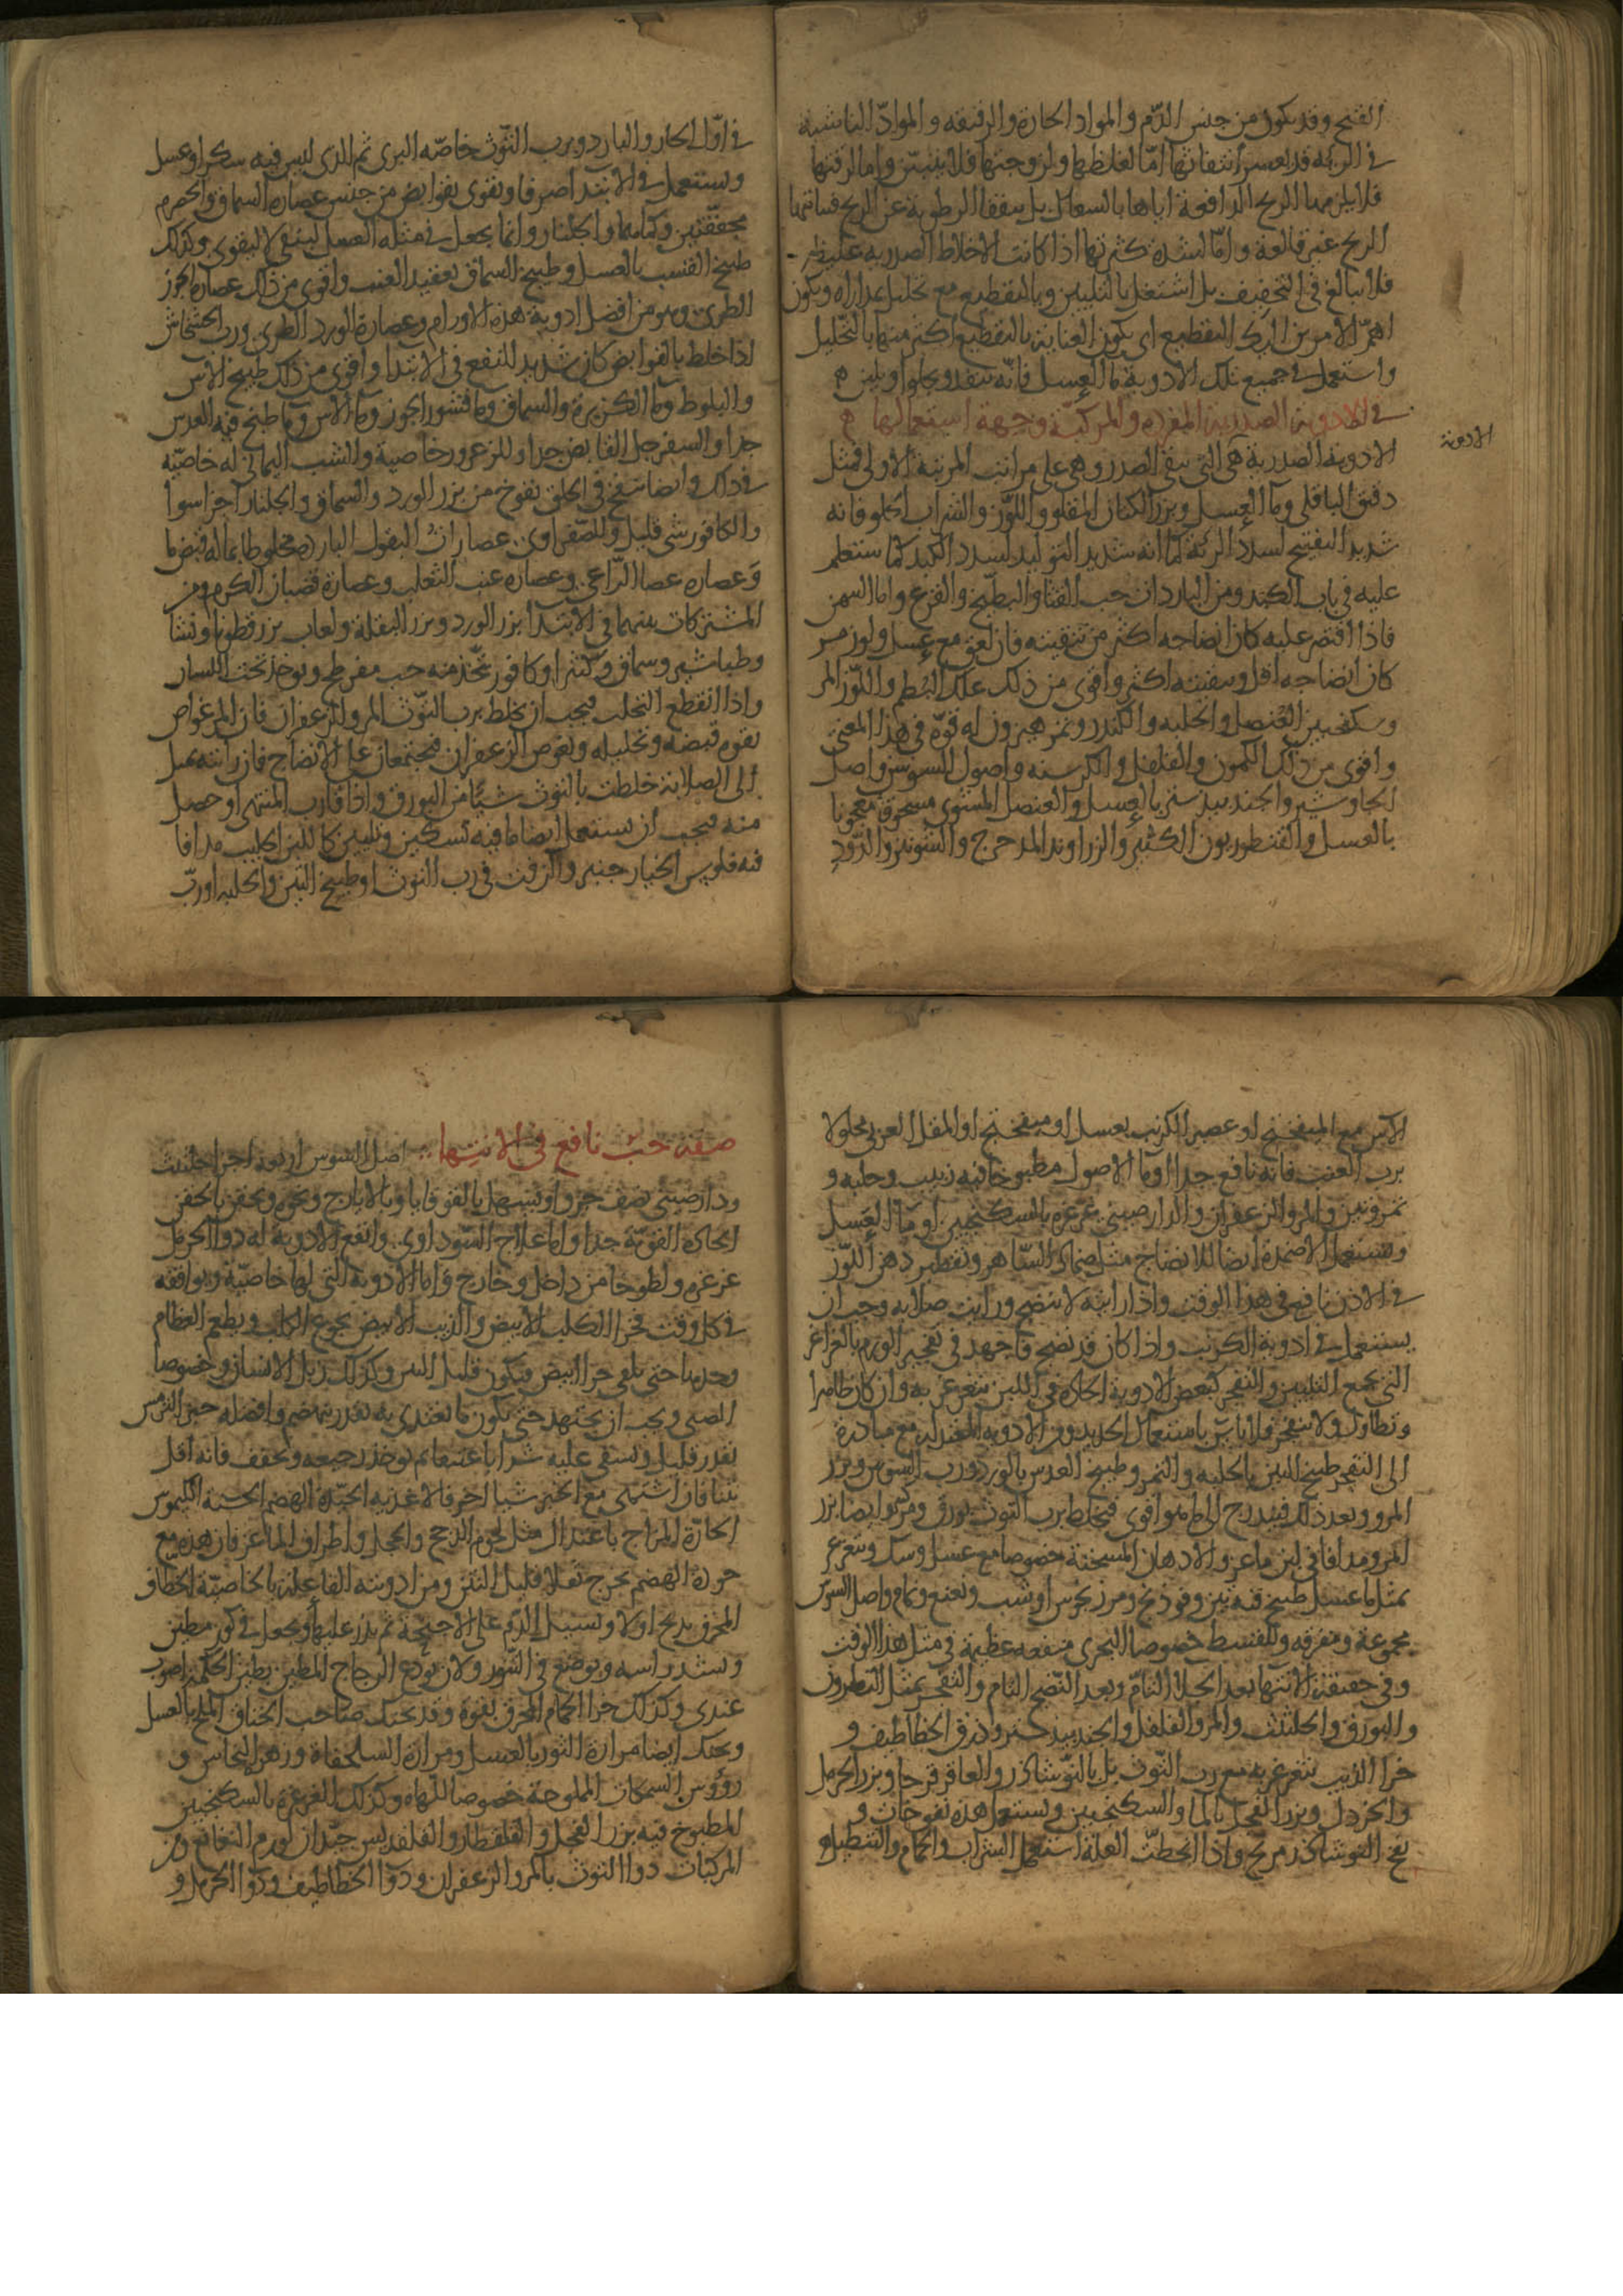 القيح وقد يكون من جنس الدّم والمواد الحارة والرقيقه والموادّ الناشبة
فى الريه قد يعسر انتفاثها امّا لغلظها ولزوجتها فلا ينتفث واما لرقتها
فلا يلزمها الريح الدافعة اياها بالسعال بل ينفقا الرطوبة عن الريح فيباينها
الريح غير قالعة وامّا لشدة كثرتها اذا كانت الاخلاط الصدرية غليظه
فلا تبالغ فى التجفيف بل اشتغل بالتليين وبالتقطيع مع تحليل بمداراه ويكون
اهمّ الامرين اليك التقطيع اى يكون العناية بالتقطيع اكثر منها بالتحليل
واستعمل فى جميع تلك الادوية ما العسل فانّه ينفذ ويجلو او يلين ه
فى الادوية الصدرية المفرده والمركبّة وجهة استعمالها ه
الادوية
الادوية الصدرية هى التى تنقى الصدر وهى على مراتب المرتبة الاولى فمثل
دقيق الباقلى وما العسل وبزر الكتان المقلو واللوّز والشراب الحلو فانه
شديد التفتيح لسدد الرئة كما انه شديد التوليد لسدد الكبد كما ستعلم
عليه فى باب الكبد ومن البارد ان حب القثا والبطيّخ والقرع واما السمن
فاذا اقتصر عليه كان انضاجه اكثر من تنقيته فان لعق مع عسل ولوز مر
كان انضاجه اقل وتنقيته اكثر واقوى من ذلك علك البُطم واللوّز المر
وسكنجبين العُنصل والحلبه والكندر وتمر هيرون له قوّة فى هذا المعنى
واقوى من ذلك الكمون والفلفل والكرسنه واصول السوسن واصل
الجاوشير والجندبيدستر بالعسل والعنصل المشوى مسحوقا معجونا
بالعسل والقنطوريون الكبير والزراوند المدحرج والشونيز والدّود
فى اوّل الحار والبارد وبرب التّوث خاصّه البرى ثم الذى ليس فيه سكر او عسل
ويستعمل فى الابتدا صرفا ويقوى بقوابض من جنس عصارة السماق والحصرم
مجففّتين وكماهما والجلنار وانما يجعل فى مثله العسل لينقى لا ليقوى وكذلك
طبيخ القسب بالعسل وطبيخ السماق بعقيد العنب واقوى من ذلك عصارة الجوز
الطرى وهو من افضل ادوية هذه الاورام وعصارة الورد الطرى ورب الخشخاش
اذا خلط بالقوابض كان شديد النفع فى الابتدا واقوى من ذلك طبيخ الاس
والبلوط وما الكزبرة والسماق وما قشور الجوز وما الاس وما طبخ فيه العدس
جدا والسفرجل القابض جدا وللزعرور خاصية والشب اليمانى له خاصّيه
فى ذلك وايضا ينفخ فى الحلق نفوخ من بزر الورد والسماق والجلنار اجزا سوا
والكافور شى قليل وللصّفراوى عصارات البقول البارده مخلوطا بما له قبض ما
وَعصاره عصا الرّاعى وعصاره عنب الثعلب وعصارة قضبان الكرم ومن
المشتركات بينهما فى الابتدا بزر الورد وبزر البقلة ولعاب بزر قطونا ونشا
وطباشير وسماق وكثيرا وكافور يتخّذ منه حب مفرطح ويوخذ تحت اللسان
واذا انقطع التحلب فيجب ان يخلط برب التّوث المر والزعفران فان المر غواص
بقوه قبضه وتحليله ويغوص الزعفران فيجتمعان على الانضاج فان رايته يميل
الى الصلابة خلطت بالتوث شيًا من البورق واذا قارب المنتهى او حصل
منه فيجب ان يستعمل ايضا ما فيه تسكين وتليين كاللبن الحليب مدافا
فيه فلوس الخيار جنبر والزفت فى رب التوث او طبيخ التين والحلبه او ربّ
الآس مع الميفختج او عصير الكرنب بعسل او ميفختج او المقل العربى محلولا
برب العنب فانه نافع جدا او ما الاصول مطبوخا فيه زبيب وحلبه و
تمر وتين والمر والزعفران والدارصينى غرغره بالسكنجبين او ما العسل
ويستعمل الاضمدة ايضا للانضاج مثل ضماد السّاهر وتقطير دهن اللوّز
فى الاذن نافع فى هذا الوقت واذا رايته لا ينضج ورايت صلابه وجب ان
يستعمل فى ادوية الكبريت واذا كان قد نضج فاجهد فى تفجير الورم بالغراغر
التى تجمع التليين والتفجير كبعض الادوية الحارة فى اللبن يتغرغر به وان كان ظاهرا
وتطاول ولا ينفجر فلا باسّ باستعمال الحديد ومن الادوية المعتدلة مع مبادرة
الى التفجير طبيخ التين بالحلبه والتمر وطبيخ العدس بالورد ورب السّوس وبزر
المرو وبعد ذلك فيتدرج الى ما هو اقوى فيخلط برب التوث بورق وكبريت وايضا بزر
المرو مدافا فى لبن ماعز والادهان المسخنة خصوصا مع عسل وسكر وتتغرغر
بمثل ما عسل طبيخ فيه تين وفوذنج ومرزنجوش او شب ونعنع ونمام واصل السوس
مجموعة ومفرقه وللقسط خصوصا البحرى منفعه عظيمة فى مثل هذا الوقت
وفى حقيقة الانتها بعد انحلال التامّ وبعد النّضج التام والتفجّر بمثل النطرون
والبورق والحلتيت والمر والفلفل والجندبيدستر وذرق الخطاطيف و
خرا الذيب يتغرغر به مع رب التّوث بل بالنّوشاذر والعاقرقرحا وبزر الحرمل
والخردل وبزر الفجل بالما والسكنجبين ويستعمل هذه نفوخات و
نفخ النوشاذر مريح واذا انحطتّ العلة استعمل الشراب والحمام والتنطيل و
صفة حبّ نافع فى الانتِها ۞ اصل السوس اربعه اجزا حلتيت
ودارصينى نصف جزو اويسهل بالقوقايا وبالايارج ونحوه ويحقن بالحقن
الحادة القويّة جدا واما علاج السّوداوى وانفع الادوية له دوا الحرمل
غرغره ولطوخا من داخل وخارج واما الادوية التى لها خاصيّة وموافقه
فى كل وقت فخرا الكلب الابيض والذيب الابيض يجوع الكلب ويطعم العظام
وحدها حتى يلقى خرا ابيض ويكون قليل النتن وكذلك زبل الانسان وخصوصا
الصبى ويجب ان يجتهد حتى يكون ما يغتذى به بقدر ينهضم وافضله خبز الترمس
بقدر قليل ويسقى عليه شرابا عتيقا ثم يوخذ رجيعه ويجفف فانه اقل
نتنا فان اشتهى مع الخبز شيا اخر فالاغذيه الجيّدة الهضم الحسنة الكيموس
الحارّة المزاج باعتدال مثل لحوم الدجج والحجل واطراف الماعز فان هذه مع
جودة الهضم يخرج ثفلا قليل النتن ومن ادويته الفاعلة بالخاصيّة الخطاف
المحرق يذبح اولا ويسيل الدّم على الاجنحة ثم يذر عليها ويجعل فى كوز مطين
ويشد راسه ويوضع فى التّنور ولان يودع الزجاج المطين بطين الحكمة اصوب
عندى وكذلك خرا الحمام المحرق بقوة وقد يحنك صاحب الخناق الملح بالعسل
ويحنك ايضا مرارة الثور بالعسل ومرارة السلحفاة وزهر النحاس و
رؤوس السمكات المملوحة خصوصا للّهاة وكذلك الغرغرة بالسكنجبين
المطبوخ فيه بزر الفجل والقلقطار والقلقديس جيّدان لورم النغانغ ومن
المركبات دوا التوث بالمر والزعفران ودوا الخطاطيف ودوا الحرمل و